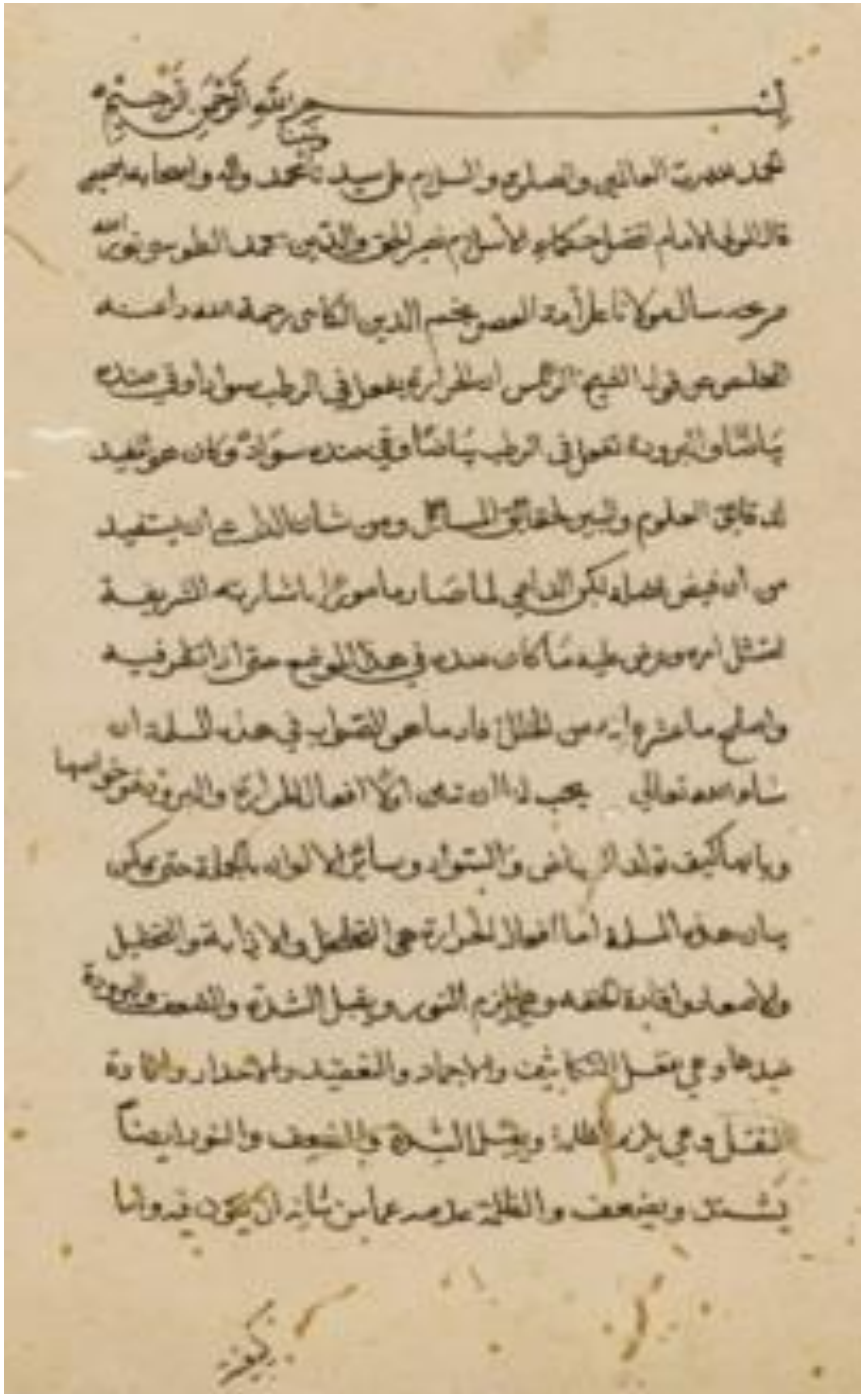 بسم الله الرحمن الرحيم
الحمد لله رب العالمين والصلوة والسلام على سيدنا محمد واله واصحابه اجمعين
قال المولى الامام افضل حكماء الاسلام نصير الحق والدين محمد الطوسي نور الله
مرقده سأل مولانا علامة العصر نجم الدين الكاتبي رحمة الله
المخلص عن قول الشيخ الرئيس ان الحرارة تفعل في الرطب سوادا وفي ضده
بياضا والبرودة تفعل في الرطب بياضا وفي ضده سوادا وكان هو المفيد
لدقايق العلوم والمبين لحقائق المسائل ومن شان الداعي ان يستفيد
من فيض فضله لكن الداعي لما صار مامورا باشارته الشريفة
امتثل امره وعرض عليه ما كان عنده في هذا الموضع حتى اذا نظر فيه
واصلح ما عثر عليه من الخلل افاد ما هو الصواب في هذه المسئلة ان
شاء الله تعالى يجب لنا ان نبين اولا افعال الحرارة والبرودة وخواصهما
وثانيا كيف تولد البياض والسواد وسائر الالوان بالجملة حتى يمكن
بيان هذه المسئلة اما افعال الحرارة هي التخلخل والاذابة والتحليل
والاصعاد وافادة الخفة وهي يلزم النور ويقبل الشدة والضعف والبرودة
ضدها وهي تفعل التكاثف والاجماد والتعقيد والاحدار وافادة
الثقل وهي يلزم الظلمة ويقبل الشدة والضعف والنور ايضا
يشتد ويضعف والظلمة عدمه عما من شانه ان يكون فيه واما